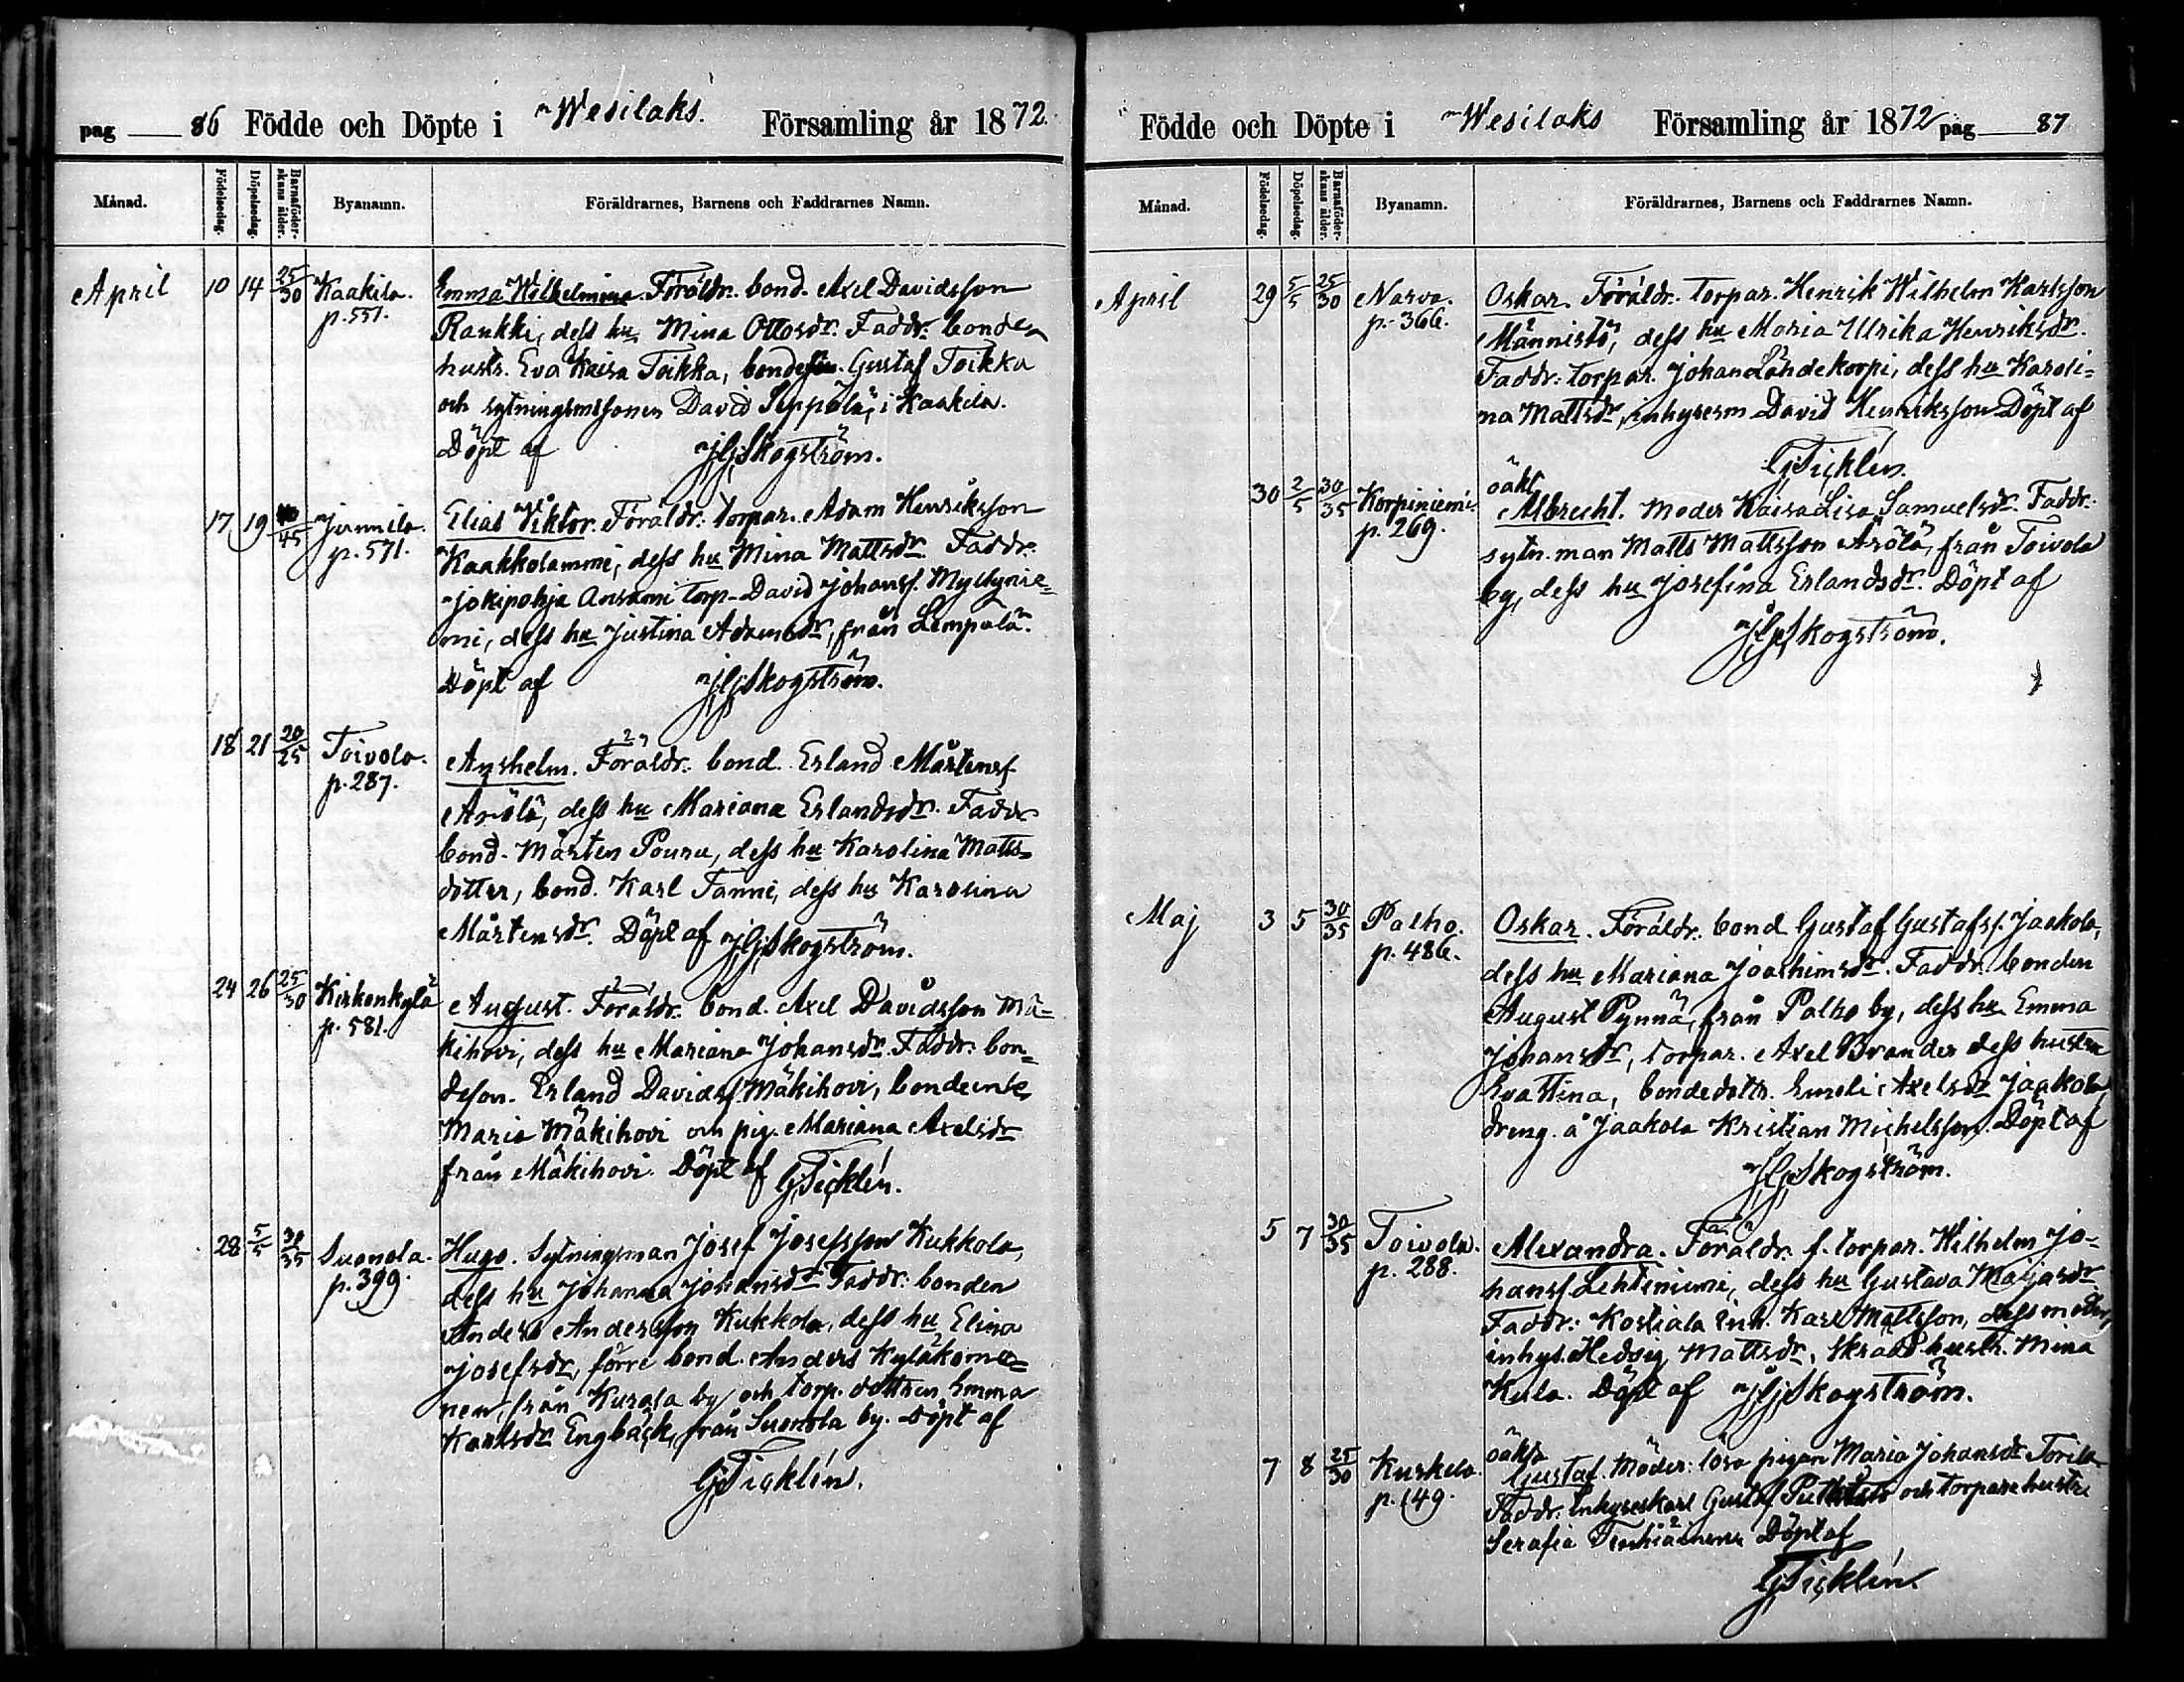 pag 86 Födde och Döpte i Wesilaks. Församling år 1872.
Månad. Födelsedag. Döpelsedag. Barnaföderskans ålder. Byanamn. Föräldrarnes, Barnens och Faddrarnes Namn.
April 10 14 25/30 Kaakila. Emma Wilhelmina. Föräldr. bond. Axel Davidsson
p. 551. Raukki, dess hu Mina Ottosdr. Faddr. bonde
hustr. Eva Kaisa Toikka, bondeson. Gustaf Toikka
och sytningsmssonen David Seppälä, i Kaakila.
Döpt af JGSkogström.
17 19 40/45 Junnila. Elias Viktor. Föräldr: torpar. Adam Henriksson
p. 571. Kaakkolammi, dess hu Mina Mattsdr. Faddr:
Jokipohja Ansomi torp. David Johanss. Myllynie=
mi, dess hu Justina Adamsdr, från Lempälä.
Döpt af JGSkogström.
18 21 20/25 Toivola. Anshelm. Föräldr. bond. Erland Mårtenss
p. 287. Arölä, dess hu Mariana Erlandsdr. Faddr
bond. Mårten Pouru, dess hu Karolina Matts=
dotter, bond. Karl Tanni, dess hu Karolina
Mårtensdr. Döpt af JGSkogström.
24 26 25/30 Kirkonkylä August. Föräldr. bond. Axel Davidsson Mä=
p. 581. kihovi, dess hu Mariana Johansdr. Faddr: bon=
deson. Erland Davidss Mäkihovi, bondeenk.
Maria Mäkihovi och pig. Mariana Axelsdr
från Mäkihovi. Döpt af GTicklén.
28 5/5 30/35 Suonola. Hugo. Sytningsman Josef Josefsson Kukkola,
p. 399. dess hu Johanna Johansdr Faddr: bonden
Anders Andersson Kukkola, dess hu Elina
Josefsdr, förre bond. Anders Kyläkoma=
nen, från Kurala by och torp. dottren Emma
Karlsdr Engbäck, från Suonola by. Döpt af
GTicklén.
Födde och Döpte i Wesilaks Församling år 1872 pag 87
Månad. Födelsedag. Döpelsedag. Barnaföderskans ålder. Byanamn. Föräldrarnes, Barnens och Faddrarnes Namn.
April 29 5/5 25/30 Narva. Oskar. Föräldr. torpar. Henrik Wilhelm Karlsson
p. 366. Männistö, dess hu Maria Ulrika Henriksdr.
Faddr: torpar. Johan Lähdekorpi, dess hu Karoli=
na Mattsdr, inhysesm David Henriksson Döpt af
GTicklén.
oäkt
30 2/5 30/35 Korpiniemi Albrecht. Moder Kaisa Lisa Samuelsdr. Faddr.
p. 269. sytn. man Matts Mattsson Arölä, från Toivola
by, dess hu Josefina Erlandsdr. Döpt af
JGSkogström.
Maj 3 5 30/35 Palho. Oskar. Föräldr. bond Gustaf Gustafss. Jaakola,
p. 486. dess hu Mariana Joachimsdr. Faddr. bonden
August Pynnä, från Palho by, dess hu Emma
Johansdr, torpar. Axel Brander dess hustru
Eva Stina, bondedottr. Emeli Axelsdr Jaakola,
dreng. å Jaakola Kristian Michelsson. Döpt af
JGSkogström.
5 7 30/35 Toivola. Alexandra. Föräldr. f. torpar. Wilhelm Jo=
p. 288. hanss Lehtiniemi, dess hu Gustava Maijasdr
Faddr: Kostiala inh. Karl Mattsson, dess moder,
inhys. Hedvig Mattsdr, Skrädd. hustr. Mina
Kula. Döpt af JGSkogström.
oäkta
7 8 25/30 Kuskela. Gustaf. Moder: lösa pigan Maria Johansdr Torila
p. 149. Faddr: Inhyseskarl Gustaf och torparehustru
Serafia Döpt af
GTicklén.